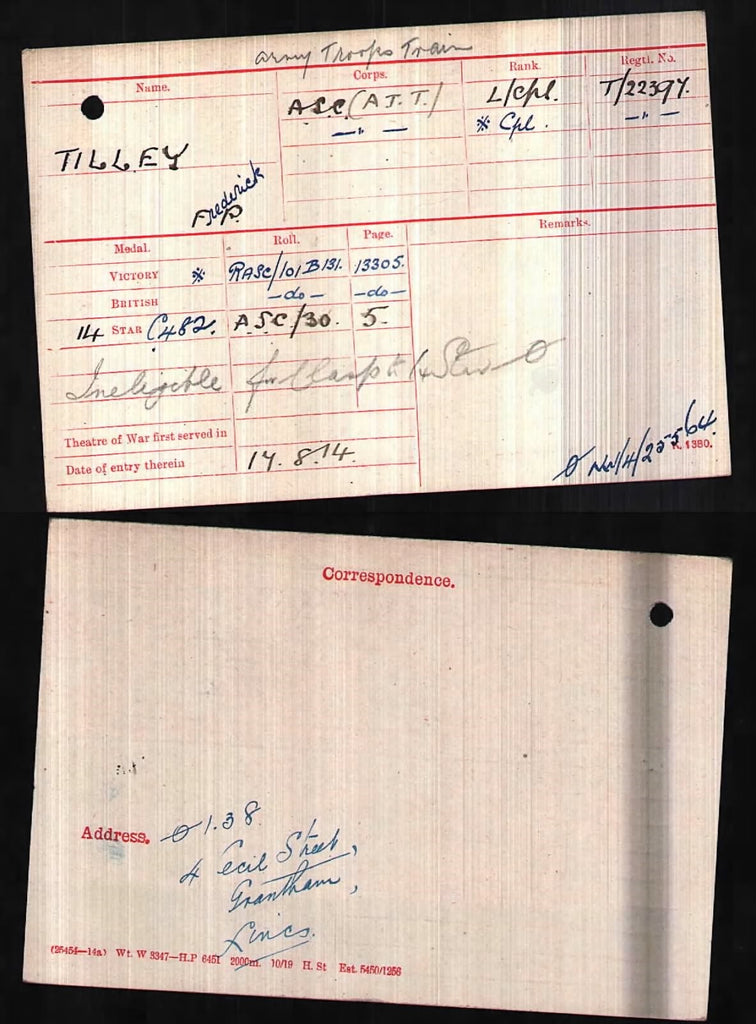 Army Troops Train
Name. Corps. Rank. Regtl. No.
A.S.C. (A.T.T.) L/Cpl. T/22397.
—"— * Cpl. —"—
TILLEY
Frederick
P
Medal. Roll. Page. Remarks.
VICTORY * RASC/101 B131. 13305.
BRITISH —do— —do—
14 STAR C482. A.S.C./30. 5.
Ineligible for Clasp to 14 Star
Theatre of War first served in
Date of entry therein 17.8.14.
NW/4/25564
K. 1380.
Correspondence.
Address. 1.38
4 Cecil Street,
Grantham,
Lincs.
(26454—14a) Wt. W 3347—H.P 6451 2000m. 10/19 H. St Est. 5450/1256